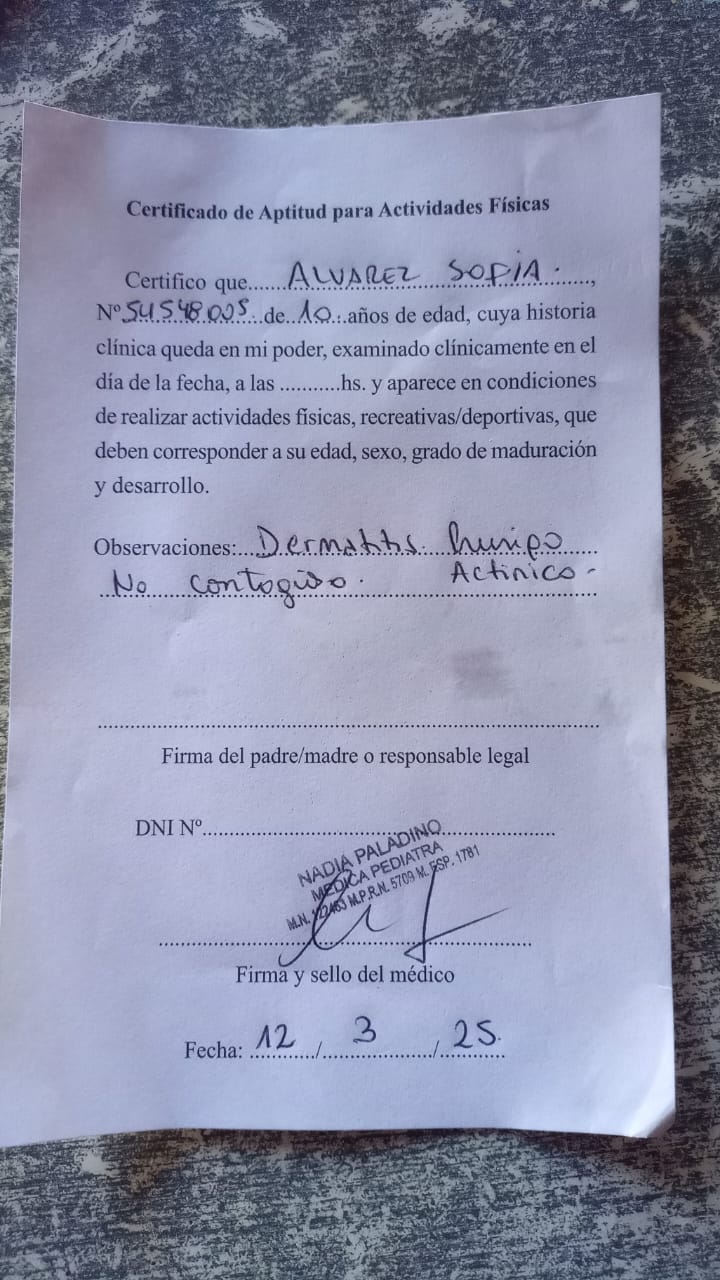 Certificado de Aptitud para Actividades Físicas
Certifico que......ALVAREZ SOFIA.......,
Nº 54.548.005..de..10..años de edad, cuya historia
clínica queda en mi poder, examinado clínicamente en el
día de la fecha, a las ...........hs. y aparece en condiciones
de realizar actividades físicas, recreativas/deportivas, que
deben corresponder a su edad, sexo, grado de maduración
y desarrollo.
Observaciones:...Dermatitis
No contagioso. Actinico-
Firma del padre/madre o responsable legal
DNI Nº
NADIA PALADINO
MEDICA PEDIATRA
M.P.R.N. 5709 M. ESP. 1781
Firma y sello del médico
Fecha: 12 / 3 / 25